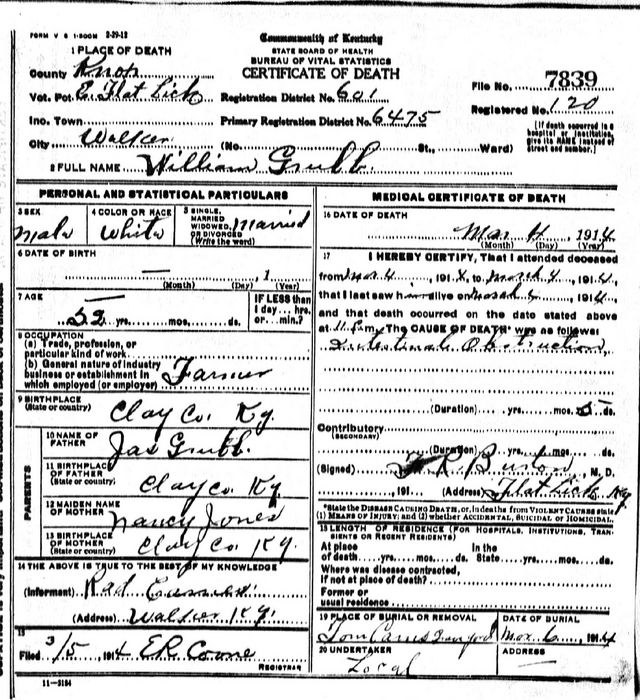 FORM V S 1-500M 2-29-12
Commonwealth of Kentucky
STATE BOARD OF HEALTH
BUREAU OF VITAL STATISTICS
CERTIFICATE OF DEATH
1 PLACE OF DEATH
County Knox
Vot. Pct. E. Flat Lick Registration District No. 601
File No. 7839
Ino. Town Primary Registration District No. 6475
Registered No. 120
City Walker (No. St., Ward)
[If death occurred in a hospital or institution, give its NAME instead of street and number.]
2 FULL NAME William Grubb
PERSONAL AND STATISTICAL PARTICULARS
3 SEX Male
4 COLOR OR RACE White
5 SINGLE, MARRIED WIDOWED, OR DIVORCED (Write the word) Married
6 DATE OF BIRTH
— , 1
(Month) (Day) (Year)
7 AGE
52 yrs. mos. ds.
IF LESS than 1 day... hrs. or... min.?
8 OCCUPATION
(a) Trade, profession, or particular kind of work
(b) General nature of industry business or establishment in which employed (or employer) Farmer
9 BIRTHPLACE (State or country) Clay Co. Ky.
PARENTS
10 NAME OF FATHER Jas Grubb
11 BIRTHPLACE OF FATHER (State or country) Clay Co. Ky
12 MAIDEN NAME OF MOTHER Nancy Jones
13 BIRTHPLACE OF MOTHER (State or country) Clay Co Ky.
14 THE ABOVE IS TRUE TO THE BEST OF MY KNOWLEDGE
(Informant)
(Address) Walker Ky.
15
Filed 3/5 1914 E R
REGISTRAR
11-5184
MEDICAL CERTIFICATE OF DEATH
16 DATE OF DEATH
Mar 4, 1914
(Month) (Day) (Year)
17 I HEREBY CERTIFY, That I attended deceased
from Mar 4, 1914, to March 4, 1914,
that I last saw h alive on March 4, 1914,
and that death occurred on the date stated above
at 11 m. The CAUSE OF DEATH* was as follows:
Intestinal Obstruction
(Duration) yrs. mos. 5 ds.
Contributory
(SECONDARY)
(Duration) yrs. mos. ds.
(Signed) M. D.
, 191 (Address) Flat Lick Ky
*State the DISEASE CAUSING DEATH, or, in deaths from VIOLENT CAUSES state (1) MEANS OF INJURY; and (2) whether ACCIDENTAL, SUICIDAL or HOMICIDAL.
18 LENGTH OF RESIDENCE (FOR HOSPITALS, INSTITUTIONS, TRANSIENTS OR RECENT RESIDENTS)
At place of death yrs. mos. ds. In the State yrs. mos. ds.
Where was disease contracted, If not at place of death?
Former or usual residence
19 PLACE OF BURIAL OR REMOVAL
Tom
DATE OF BURIAL
Mar 6, 1914
20 UNDERTAKER
Local
ADDRESS
—